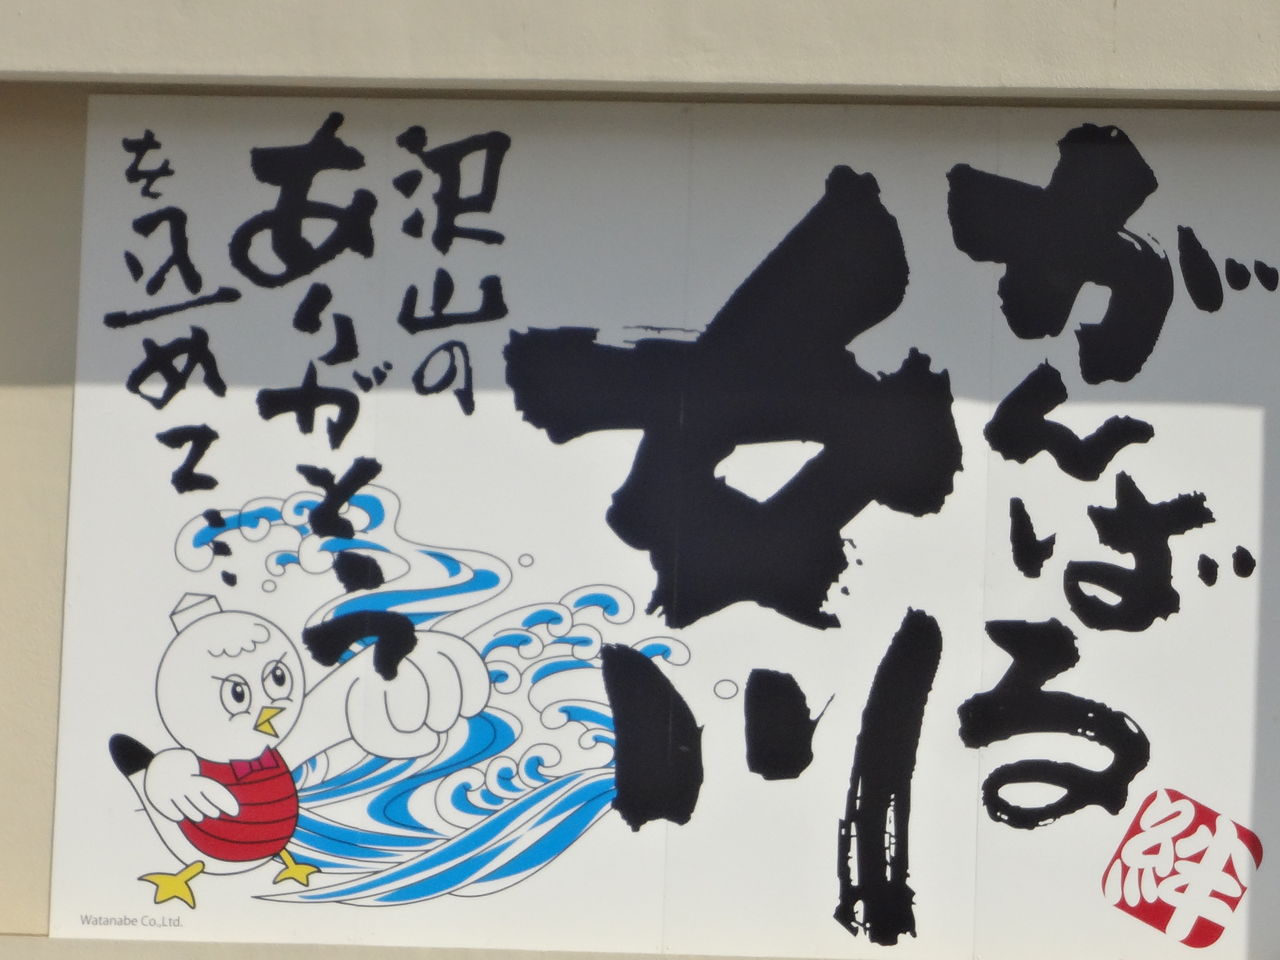 がんばる
女川
沢山の
ありがとう
を込めて・・・
絆
Watanabe Co.,Ltd.